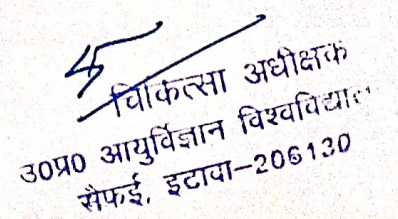 चिकित्सा अधीक्षक
उ0प्र0 आयुर्विज्ञान विश्वविद्याल
सैफई, इटावा-206130